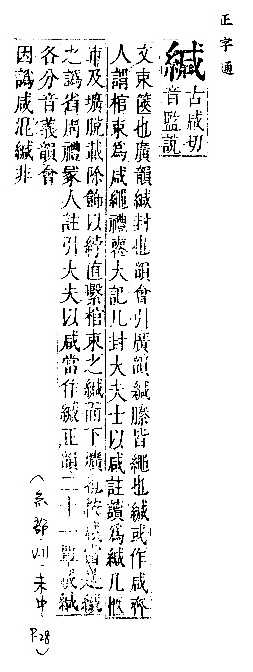 正字通
緘
古咸切
音監說
文束篋也廣韻緘封也韻會引廣韻緘縢皆繩也緘或作咸齊
人謂棺束為咸繩禮喪大記凡封大夫士以咸註讀為緘凡柩
車及壙脫載除飾以紼直繫棺束之緘而下壙
之譌省周禮冢人註引大夫以咸當作緘正韻二十一
各分音義韻會
因譌咸混緘非
(糸部·VII·未中
P.28)